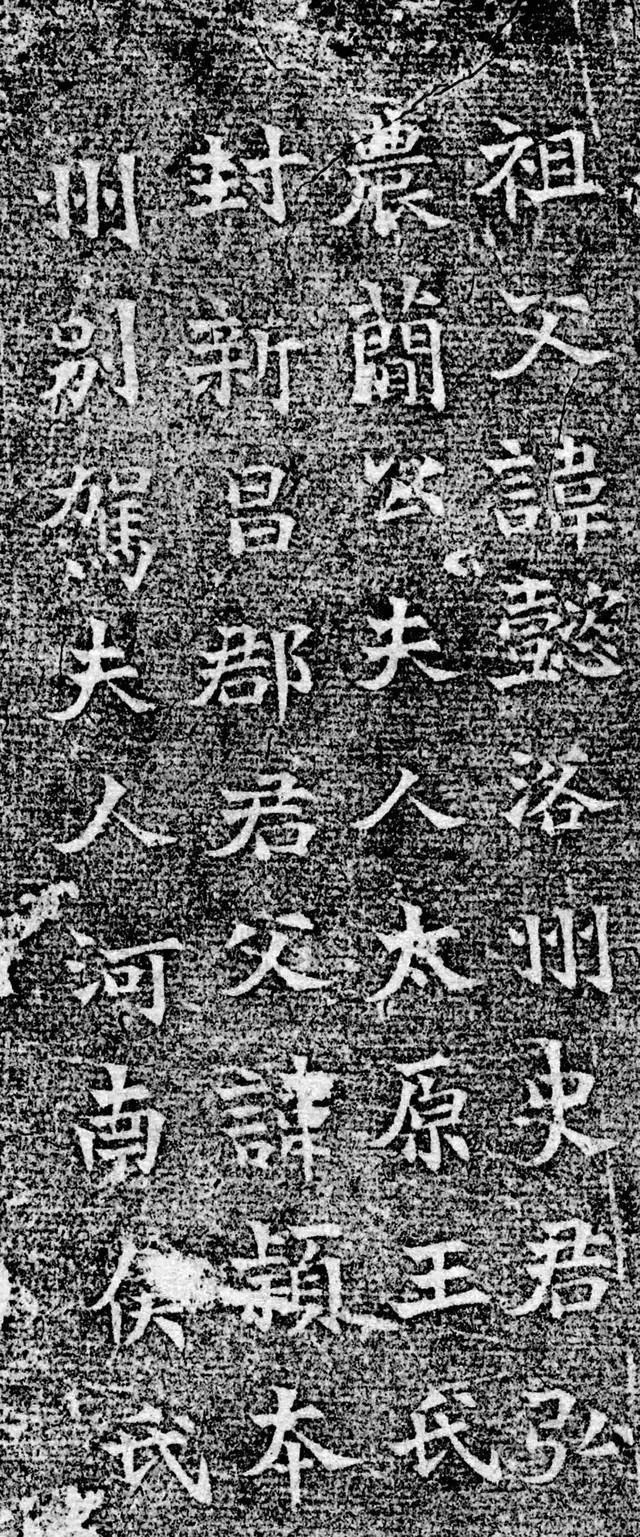 祖父諱懿洛州史君弘
農蕳公夫人太原王氏
封新昌郡君父諱穎本
州別駕夫人河南侯氏